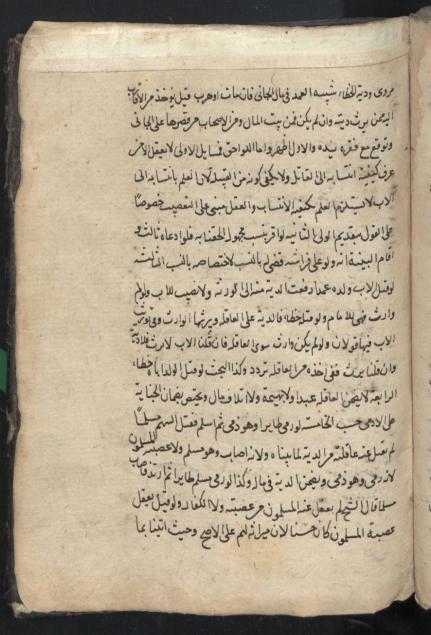 مروى ودية الخطاء شبيه العمد فى مال الجانى فان مات او هرب قيل يوخذ من الاقرب
اليه ممن يرث ديته وان لم يكن فمن بيت المال ومن الاصحاب من قصرها على الجانى
وتوقع مع فقره يسره والاول اظهر واما اللواحق فمسايل الاولى لا يعقل الا من
عرف كيفية انتسابه الى القاتل ولا يكفى كونه من القبيلة لان العلم بانتسابه الى
الاب لا يستلزم العلم بكيفية الانتساب والعقل مبنى على التعصيب خصوصا
على القول بتقديم الاولى الثانيه لو اقر بنسب مجهول الحقناه به فلو ادعاه ثالث و
اقام البينة انه ولد على فراشه قضى له بالنسب لاختصاصه بالسبب الثالثة
لو قتل الاب ولده عمدا دفعت الدية منه الى الوارث ولا نصيب للاب ولو لم
وارث فهى للامام ولو قتله خطاء فالدية على العاقلة ويرثها الوارث وفى توريث
الاب هنا قولان ولو لم يكن وارث سوى العاقلة فان قلنا الاب لا يرث فلا دية
وان قلنا يرث ففى اخذه من العاقلة تردد وكذا البحث لو قتل الولد اباه خطاء
الرابعة لا يضمن العاقلة عبدا ولا بهيمة ولا اتلاف مال ويختص بضمان الجناية
على الادمى حسب الخامسة لو رمى طايرا وهو ذمى ثم اسلم فقتل السهم مسلما
لم يعقل عنه عاقلته من الدية لما بيناه ولانه اصاب وهو مسلم ولا عصبته المسلمون
لانه رمى وهو ذمى ويضمن الدية فى ماله وكذا لو رمى مسلم طايرا ثم ارتد فاصاب
مسلما قال الشيخ لم يعقل عنه المسلمون من عصبته ولا الكفار ولو قيل يعقل
عصبة المسلمون كان حسنا لان ميراثه لهم على الاصح وحيث اتينا بما